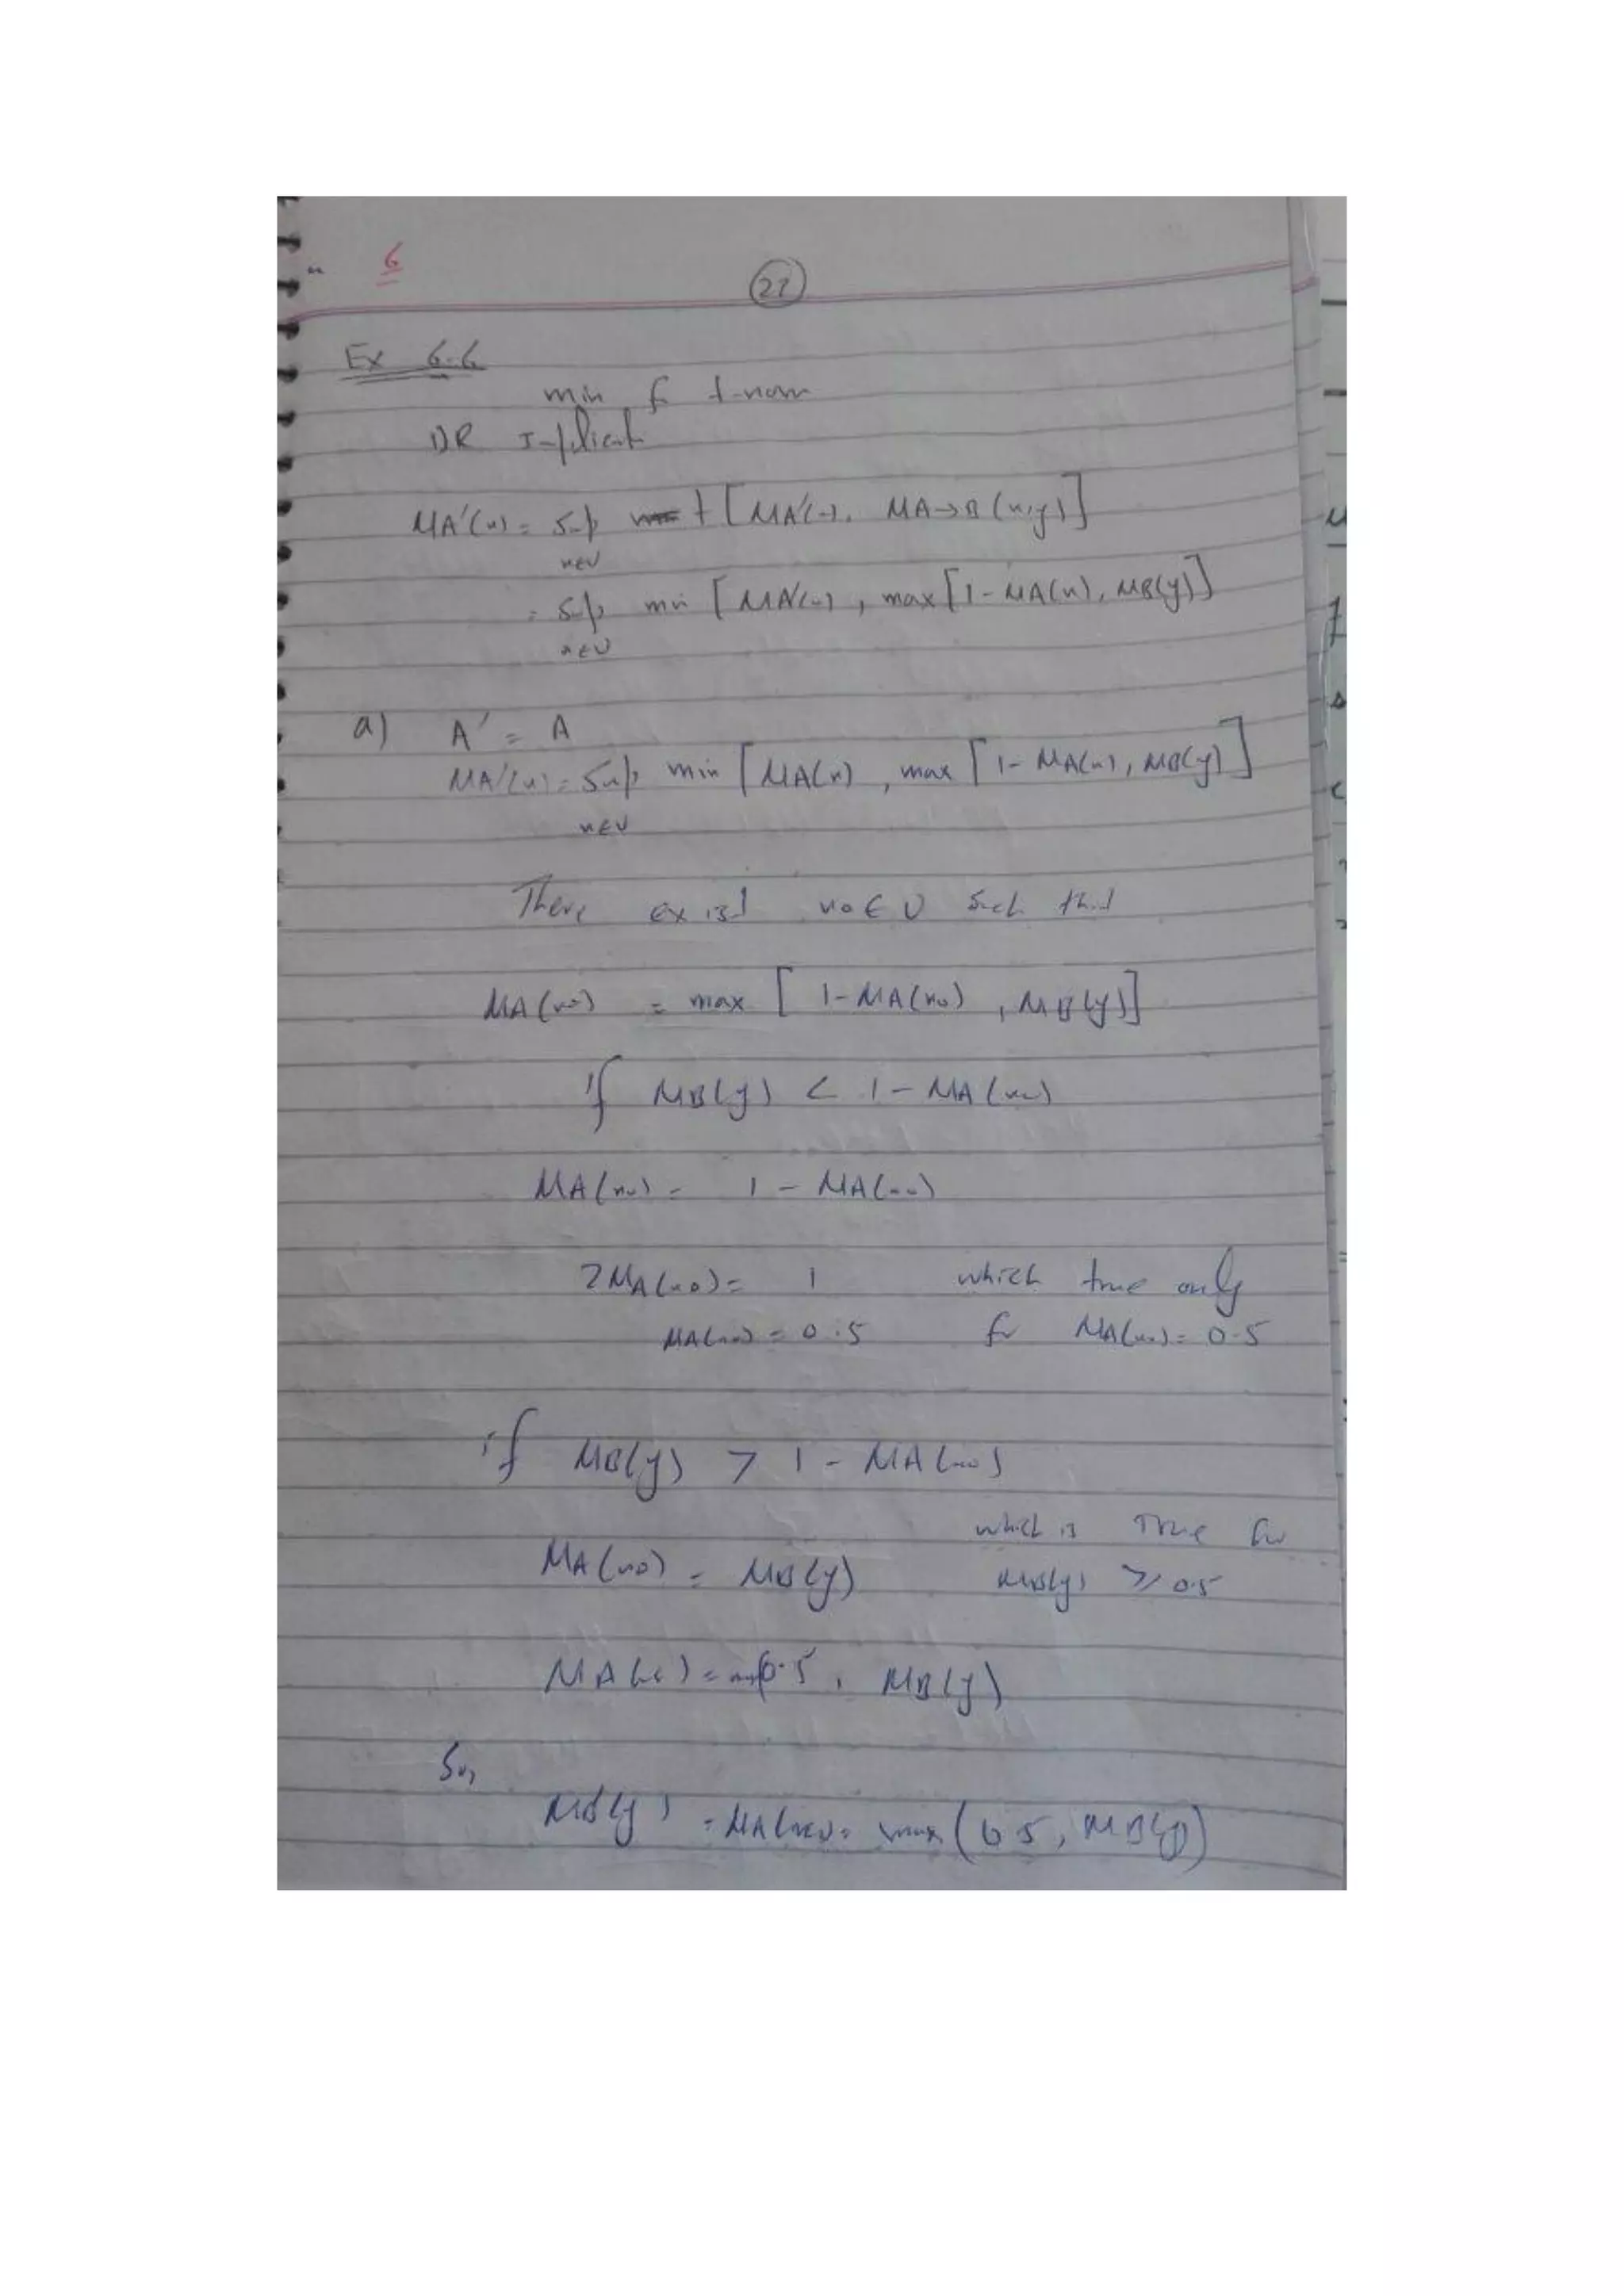 6
27
Ex 6.6
min f t-norm
DR Implicat
MA'(x) = Sup t [MA'(x), MA→B (x,y)]
x∈U
= Sup min [MA'(x), max[1-MA(x), MB(y)]
x∈U
a) A' = A
MA'(x) = Sup min [MA(x), max [1-MA(x), MB(y)]
x∈U
There exist x0∈U such that
MA(x0) = max [1-MA(x0), MB(y)]
if MB(y) < 1-MA(x0)
MA(x0) = 1-MA(x0)
2MA(x0) = 1 which true only
MA(x0) = 0.5 for MA(x0) = 0.5
if MB(y) > 1-MA(x0)
which is True for
MA(x0) = MB(y) MB(y) ≥ 0.5
MA(x0) = 0.5, MB(y)
So,
MB'(y) = MA(x0) = max (0.5, MB(y))